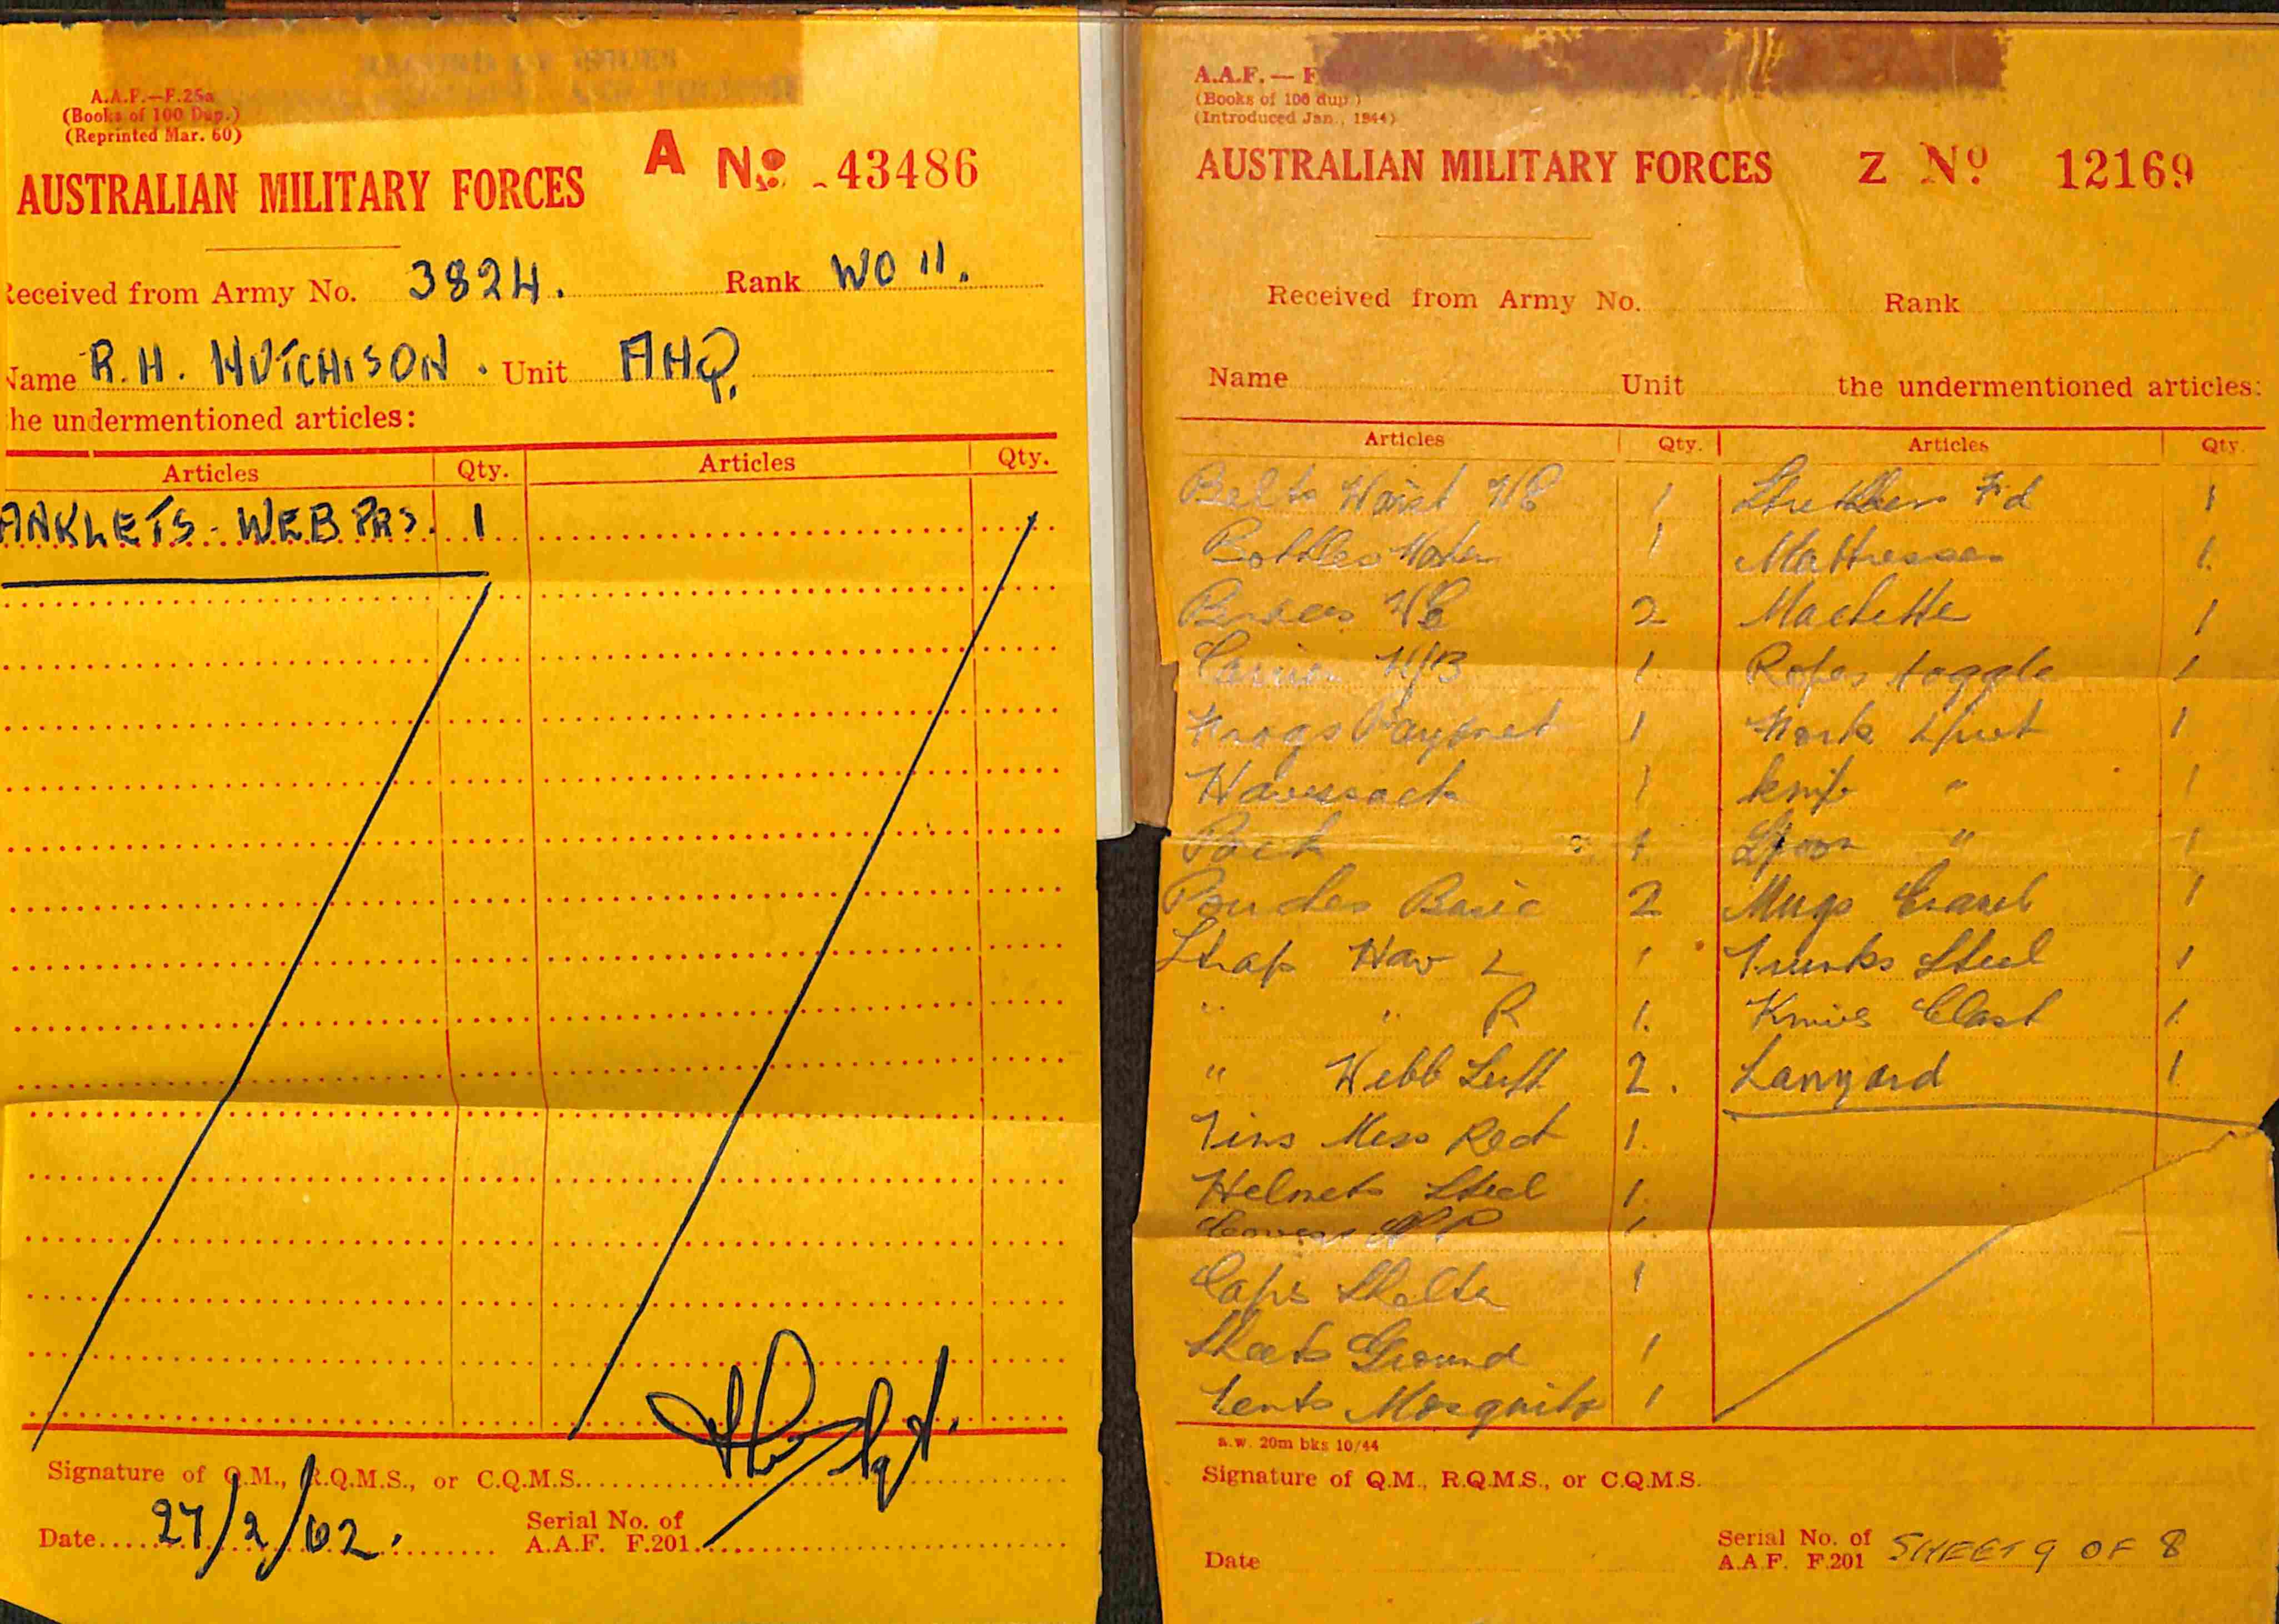 RECORD OF ISSUES
A.A.F.—F.25a
(Books of 100 Dup.)
(Reprinted Mar. 60)
AUSTRALIAN MILITARY FORCES A No. 43486
Received from Army No. 3824. Rank WO 11.
Name R.H. HUTCHISON. Unit AHQ.
he undermentioned articles:
Articles Qty. Articles Qty.
ANKLETS - WEB PRS. 1
Signature of Q.M., R.Q.M.S., or C.Q.M.S.
Sgt.
Date 27/2/62.
Serial No. of
A.A.F. F.201
A.A.F. — F
(Books of 100 dup.)
(Introduced Jan., 1944)
AUSTRALIAN MILITARY FORCES Z No 12169
Received from Army No. Rank
Name Unit the undermentioned articles:
Articles Qty. Articles Qty.
Belts Waist WE 1 Stretchers F'd 1
Bottles Water 1 Mattresses 1.
Braces WE 2 Machette 1
Carrier W/B 1. Ropes toggle 1
Frogs Bayonet 1 Fork 1
Haversack 1 knife " 1
Pack 1 Spoon " 1
Pouches Basic 2 Mugs Enamel 1
Strap Hav L 1 Trunks Steel 1
" " R 1. Knives Clasp 1.
" Webb 2. Lanyard 1
Tins Mess Rect 1.
Helmets Steel 1.
Covers 1.
Cape Shelter 1
Sheets Ground 1
Tents Mosquito 1
a.w. 20m bks 10/44
Signature of Q.M., R.Q.M.S., or C.Q.M.S.
Date
Serial No. of
A.A.F. F.201 SHEET 9 OF 8